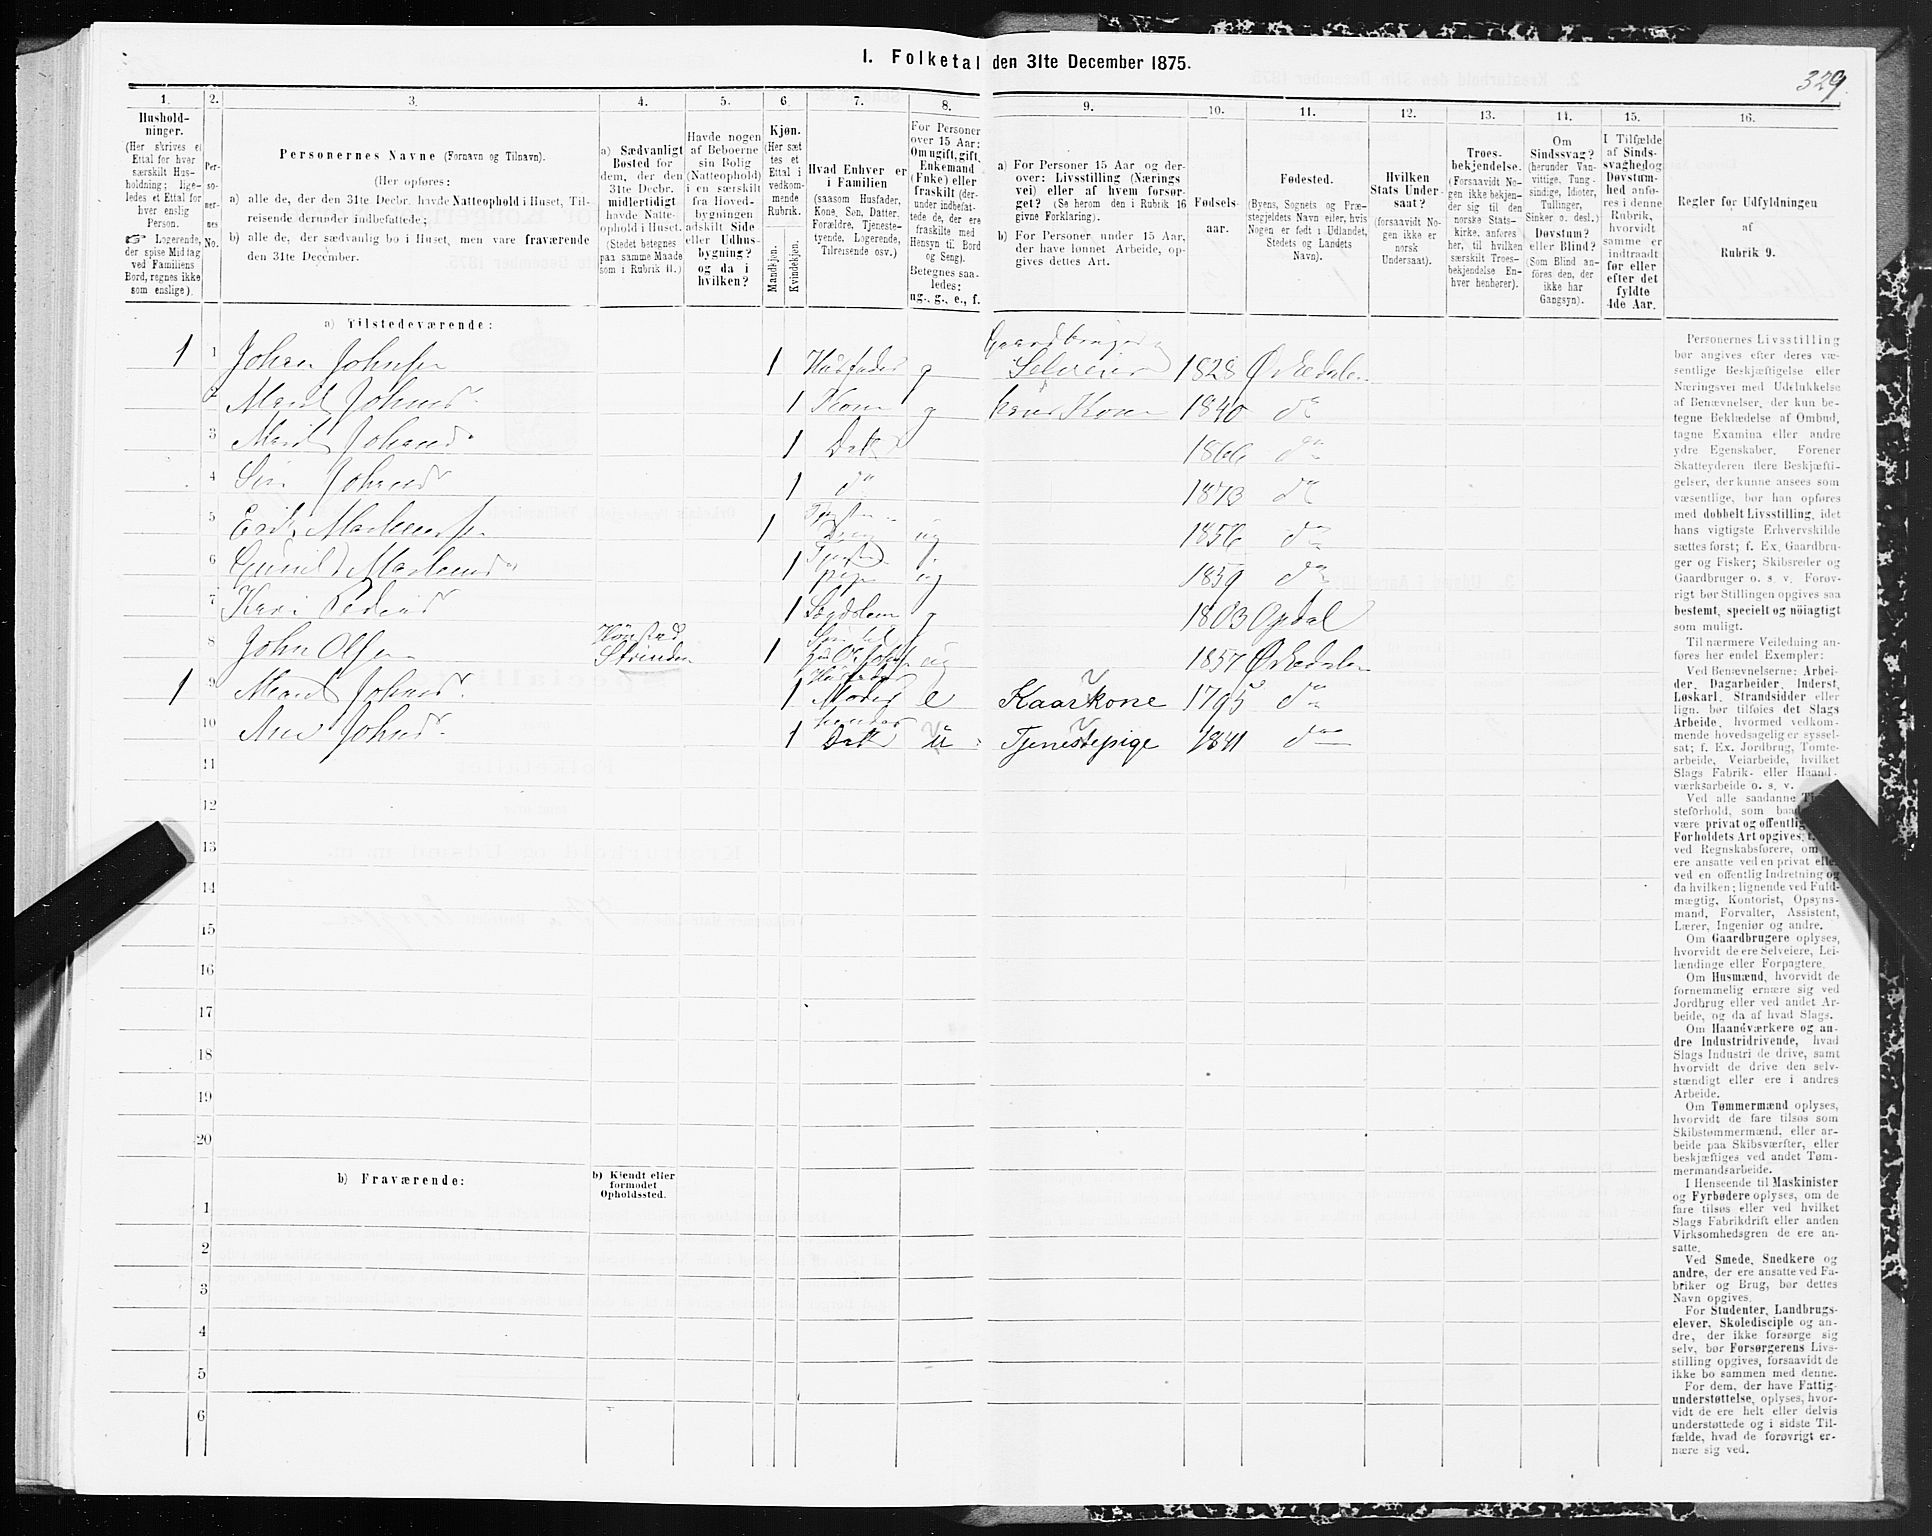 I. Folketal den 31te December 1875.
329.
1. 2. 3. 4. 5. 6. 7. 8. 9. 10. 11. 12. 13. 14. 15. 16.
Husholdninger.
(Her skrives et
Ettal for hver
særskilt Husholdning;
ligeledes et Ettal for
hver enslig
Person.
Logerende,
der spise Middag
ved Familiens
Bord, regnes ikke
som enslige).
Personernes No.
Personernes Navne (Fornavn og Tilnavn).
(Her opføres:
a) alle de, der den 31te Decbr. havde Natteophold i Huset, Tilreisende derunder indbefattede;
b) alle de, der sædvanlig bo i Huset, men vare fraværende den 31te December.
a) Sædvanligt
Bosted for
dem, der den
31te Decbr.
midlertidigt
havde Natteophold
i Huset.
(Stedet betegnes
paa samme Maade
som i Rubrik 11.)
Havde nogen
af Beboerne
sin Bolig
(Natteophold)
i en særskilt
fra Hovedbygningen
adskilt Side
eller Udhusbygning?
og da i
hvilken?
Kjøn.
(Her sættes
et
Ettal i
vedkommende
Rubrik.
Mandkjøn.
Kvindekjøn.
Hvad Enhver er
i Familien
(saasom Husfader,
Kone, Søn, Datter,
Forældre, Tjenestetyende,
Logerende,
Tilreisende osv.)
For Personer
over 15 Aar:
Om ugift, gift,
Enkemand
(Enke) eller
fraskilt (derunder
indbefattede
de, der ere
fraskilte med
Hensyn til Bord
og Seng).
Betegnes saaledes:
ug., g., e., f.
a) For Personer 15 Aar og derover: Livsstilling (Næringsvei) eller af hvem forsørget? (Se herom den i Rubrik 16 givne Forklaring).
b) For Personer under 15 Aar, der have lønnet Arbeide, opgives dettes Art.
Fødselsaar.
Fødested.
(Byens, Sognets og Præstegjeldets
Navn eller, hvis
Nogen er født i Udlandet,
Stedets og Landets
Navn).
Hvilken
Stats Undersaat?
(forsaavidt Nogen
ikke er
norsk
Undersaat).
Troesbekjendelse.
(Forsaavidt Nogen
ikke bekjender
sig til den
norske Statskirke,
anføres
her, til hvilken
særskilt Troesbekjendelse
Enhver
henhører).
Om
Sindssvag?
(herunder Vanvittige,
Tungsindige,
Idioter,
Tullinger,
Sinker o. desl.)
Døvstum?
eller Blind?
(Som Blind anføres
den, der
ikke har
Gangsyn).
I Tilfælde
af Sindssvaghed og
Døvstumhed
anføres
i denne
Rubrik,
hvorvidt
samme er
indtraadt
før eller
efter det
fyldte
4de Aar.
Regler for Udfyldningen
af
Rubrik 9.
a) Tilstedeværende:
1 1 Johan Johnsen 1 Husfader g Gaardbruger Selveier 1828 Ørkedalen
2 Marit Johnsd. 1 Kone g hans Kone 1840 do
3 Marit Johansd. 1 Datt 1866 do
4 Siri Johansd 1 do 1873 do
5 Erik 1 ug 1856 do
6 1 ug 1859 do
7 Kari Pedersd 1 g 1803 Opdal
8 John Olsen Strinden 1 ug 1857 Ørkedalen
1 9 Marit Johnsd. 1 Moder e Kaarkone 1795 do
10 Ane Johnsd. 1 Datt u Tjenestepige 1841 do
11
12
13
14
15
16
17
18
19
20
b) Fraværende:
b) Kjendt eller
formodet
Opholdssted.
1
2
3
4
5
6
Personernes Livsstilling
bør angives efter deres væsentlige
Beskjæftigelse eller
Næringsvei med Udelukkelse
af Benævnelser, der kun betegne
Beklædelse af Ombud,
tagne Examina eller andre
ydre Egenskaber. Forener
Skatteyderen flere Beskjæftigelser,
der kunne ansees som
væsentlige, bør han opføres
med dobbelt Livsstilling, idet
hans vigtigste Erhvervskilde
sættes først; f. Ex. Gaardbruger
og Fisker; Skibsreder og
Gaardbruger o. s. v. Forøvrigt
bør Stillingen opgives saa
bestemt, specielt og nöiagtigt
som muligt.
Til nærmere Veiledning anføres
her endel Exempler:
Ved Benævnelserne: Arbeider,
Dagarbeider, Inderst,
Løskarl, Strandsidder eller
lign. bør tilføies det Slags
Arbeide, hvormed vedkommende
hovedsagelig er sysselsat;
f. Ex. Jordbrug, Tomtearbeide,
Veiarbeide, hvilket
Slags Fabrik- eller Haandværksarbeide
o. s. v.
Ved alle saadanne
være privat og offentlig
Forholdets Art opgives,
ved Regnskabsførere, om
ere ansatte ved en privat eller
ved en offentlig Indretning og
da hvilken; lignende ved Fuldmægtig,
Kontorist, Opsynsmand,
Forvalter, Assistent,
Lærer, Ingeniør og andre.
Om Gaardbrugere oplyses,
hvorvidt de ere Selveiere, Leilændinge
eller Forpagtere.
Om Husmænd, hvorvidt de
fornemmelig ernære sig ved
Jordbrug eller ved andet Arbeide,
og da af hvad Slags.
Om Haandværkere og andre
Industridrivende, hvad
Slags Industri de drive, samt
hvorvidt de drive den selvstændigt
eller ere i andres
Arbeide.
Om Tømmermænd oplyses,
hvorvidt de fare tilsøs som
Skibstømmermænd, eller arbeide
paa Skibsværfter, eller
beskjæftiges ved andet Tømmermandsarbeide.
I Henseende til Maskinister
og Fyrbødere oplyses, om de
fare tilsøs eller ved hvilket
Slags Fabrikdrift eller anden
Virksomhedsgren de ere ansatte.
Ved Smede, Snedkere og
andre, der ere ansatte ved Fabriker
og Brug, bør dettes
Navn opgives.
For Studenter, Landbrugselever,
Skoledisciple og andre,
der ikke forsørge sig
selv, bør Forsørgerens Livsstilling
opgives, forsaavidt de
ikke bo sammen med denne.
For dem, der have Fattigunderstøttelse,
oplyses, hvorvidt
de ere helt eller delvis
understøttede og i sidste Tilfælde,
hvad de forøvrigt ernære
sig ved.